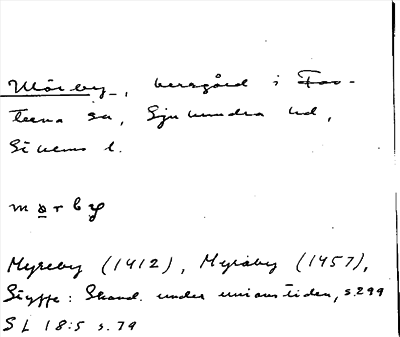 Mörby, herrgård i Fas-
terna sn, Sjuhundra hd,
Sthlms l.
mørby
Myreby (1412), Myraby (1457),
Styffe: Skand. under unionstiden, s.299
SL 18:5 s.79